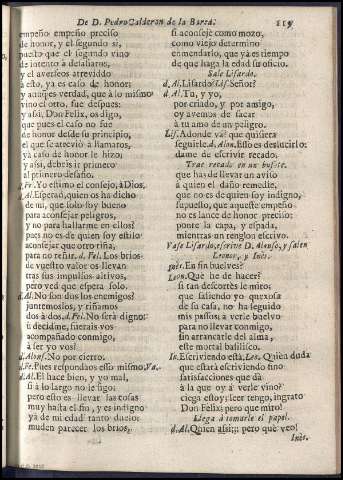 De D. Pedro Calderon de la Barca.
119
empeño empeño preciso
de honor, y el segundo si,
puesto que el segundo vino
de intento à desafiarme,
y el averseos atrevido
à esto, ya es caso de honor;
y aunque es verdad, que à lo mismo
vino el otro, fue despues:
y assi, Don Felix, os digo,
que pues el caso no fue
de honor desde su principio,
el que se atreviò à llamaros,
yà caso de honor le hizo;
y assi, debeis ir primero
al primero desafio.
d. Fe. Yo estimo el consejo, à Dios.
d. Al. Esperad, quien os ha dicho
de mi, que solo soy bueno
para aconsejar peligros,
y no para hallarme en ellos?
pues no es de quien soy estilo
aconsejar que otro riña,
para no reñir. d. Fel. Los brios
de vuestro valor os llevan
tras sus impulsos altivos,
pero ved que espera solo.
d. Al. No son dos los enemigos?
juntemoslos, y riñamos
dos à dos. d. Fel. No serà digno:
ù decidme, fuerais vos
acompañado conmigo,
à ser yo vos?
d. Alons. No por cierto.
d. Fe. Pues respondaos esso mismo. Va.
d. Al. El hace bien, y yo mal,
si à lo largo no le sigo:
pero esto es llevar las cosas
muy hasta el fin, y es indigno
yà de mi edad tanto duelo:
muden parecer los brios,
si aconsejè como mozo,
como viejo determino
enmendarlo, que yà es tiempo
de que haga la edad su oficio.
Sale Lisardo.
d. Al. Lisardo? Lis. Señor?
d. Al. Tu, y yo,
por criado, y por amigo,
oy avemos de sacar
à tu amo de un peligro.
Lis. Adonde và? que quisiera
seguirle. d. Alon. Esso es deslucirlo:
dame de escrivir recado.
Trae recado en un bufete.
que has de llevar un aviso
à quien el daño remedie,
que no es de quien soy indigno,
supuesto, que aqueste empeño
no es lance de honor preciso:
ponte la capa, y espada,
mientras un renglon escrivo.
Vase Lisardo, escrive D. Alonso, y salen
Leonor, y Inès.
Inès. En fin buelves?
Leon. Què he de hacer?
si tan descortès le miro,
que saliendo yo quexosa
de su casa, no ha seguido
mis passos; à verle buelvo
para no llevar conmigo,
sin arrancarle del alma,
este mortal basilisco.
In. Escriviendo està. Leo. Quien duda
que estarà escriviendo fino
satisfacciones que dà
à la que oy à verle vino?
ciega estoy; leer tengo, ingrato
Don Felix; pero què miro!
Llega à tomarle el papel.
d. Al. Quien assi;; pero què veo!
Inès.